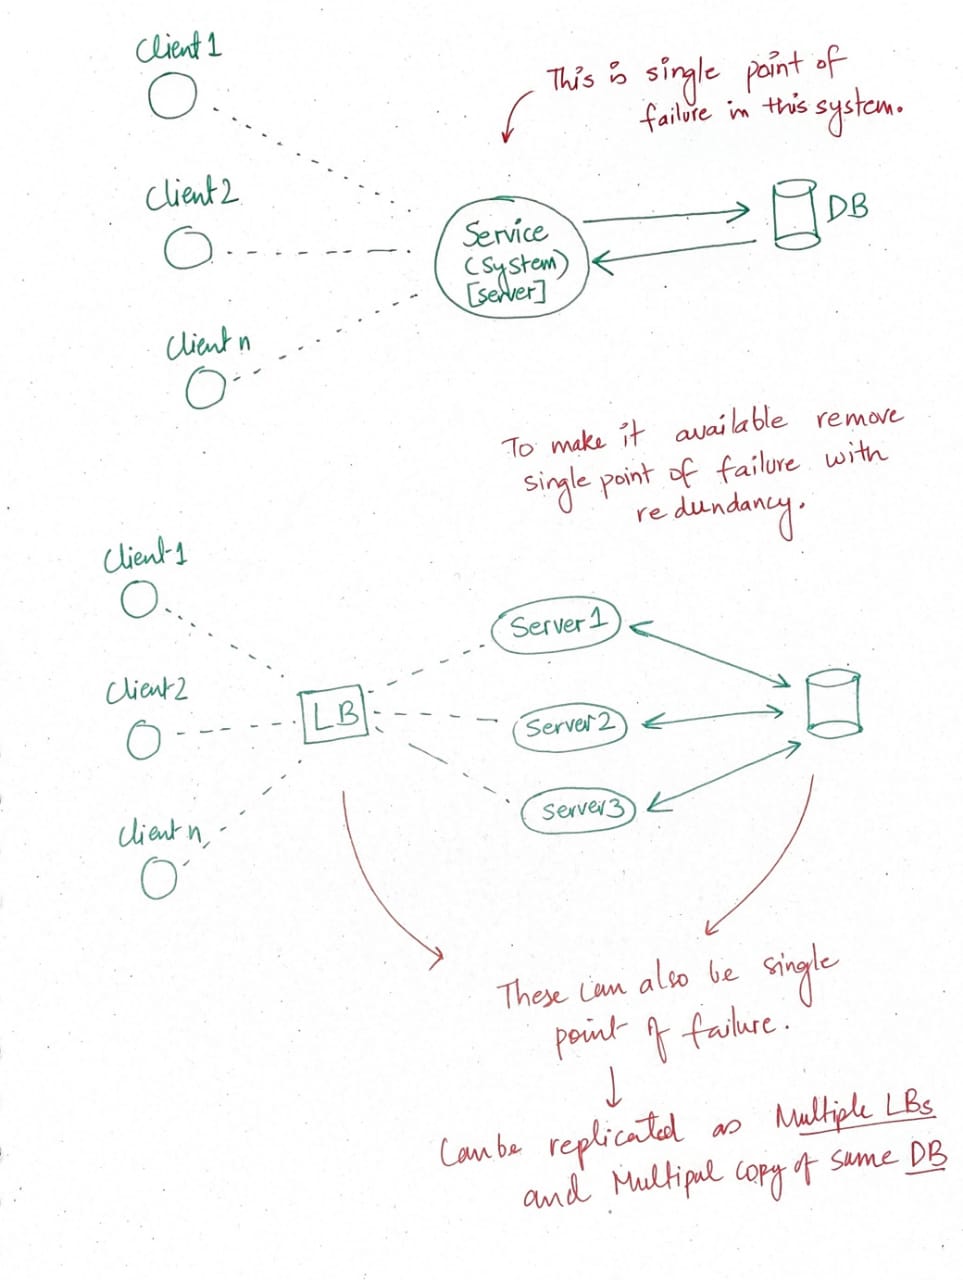 Client 1
This is single point of
failure in this system.
Client 2
Service
(system)
[server]
DB
Client n
To make it available remove
single point of failure with
redundancy.
Client 1
Server 1
Client 2
LB
Server 2
Server 3
Client n
These can also be single
point of failure.
Can be replicated as Multiple LBs
and Multipal copy of same DB